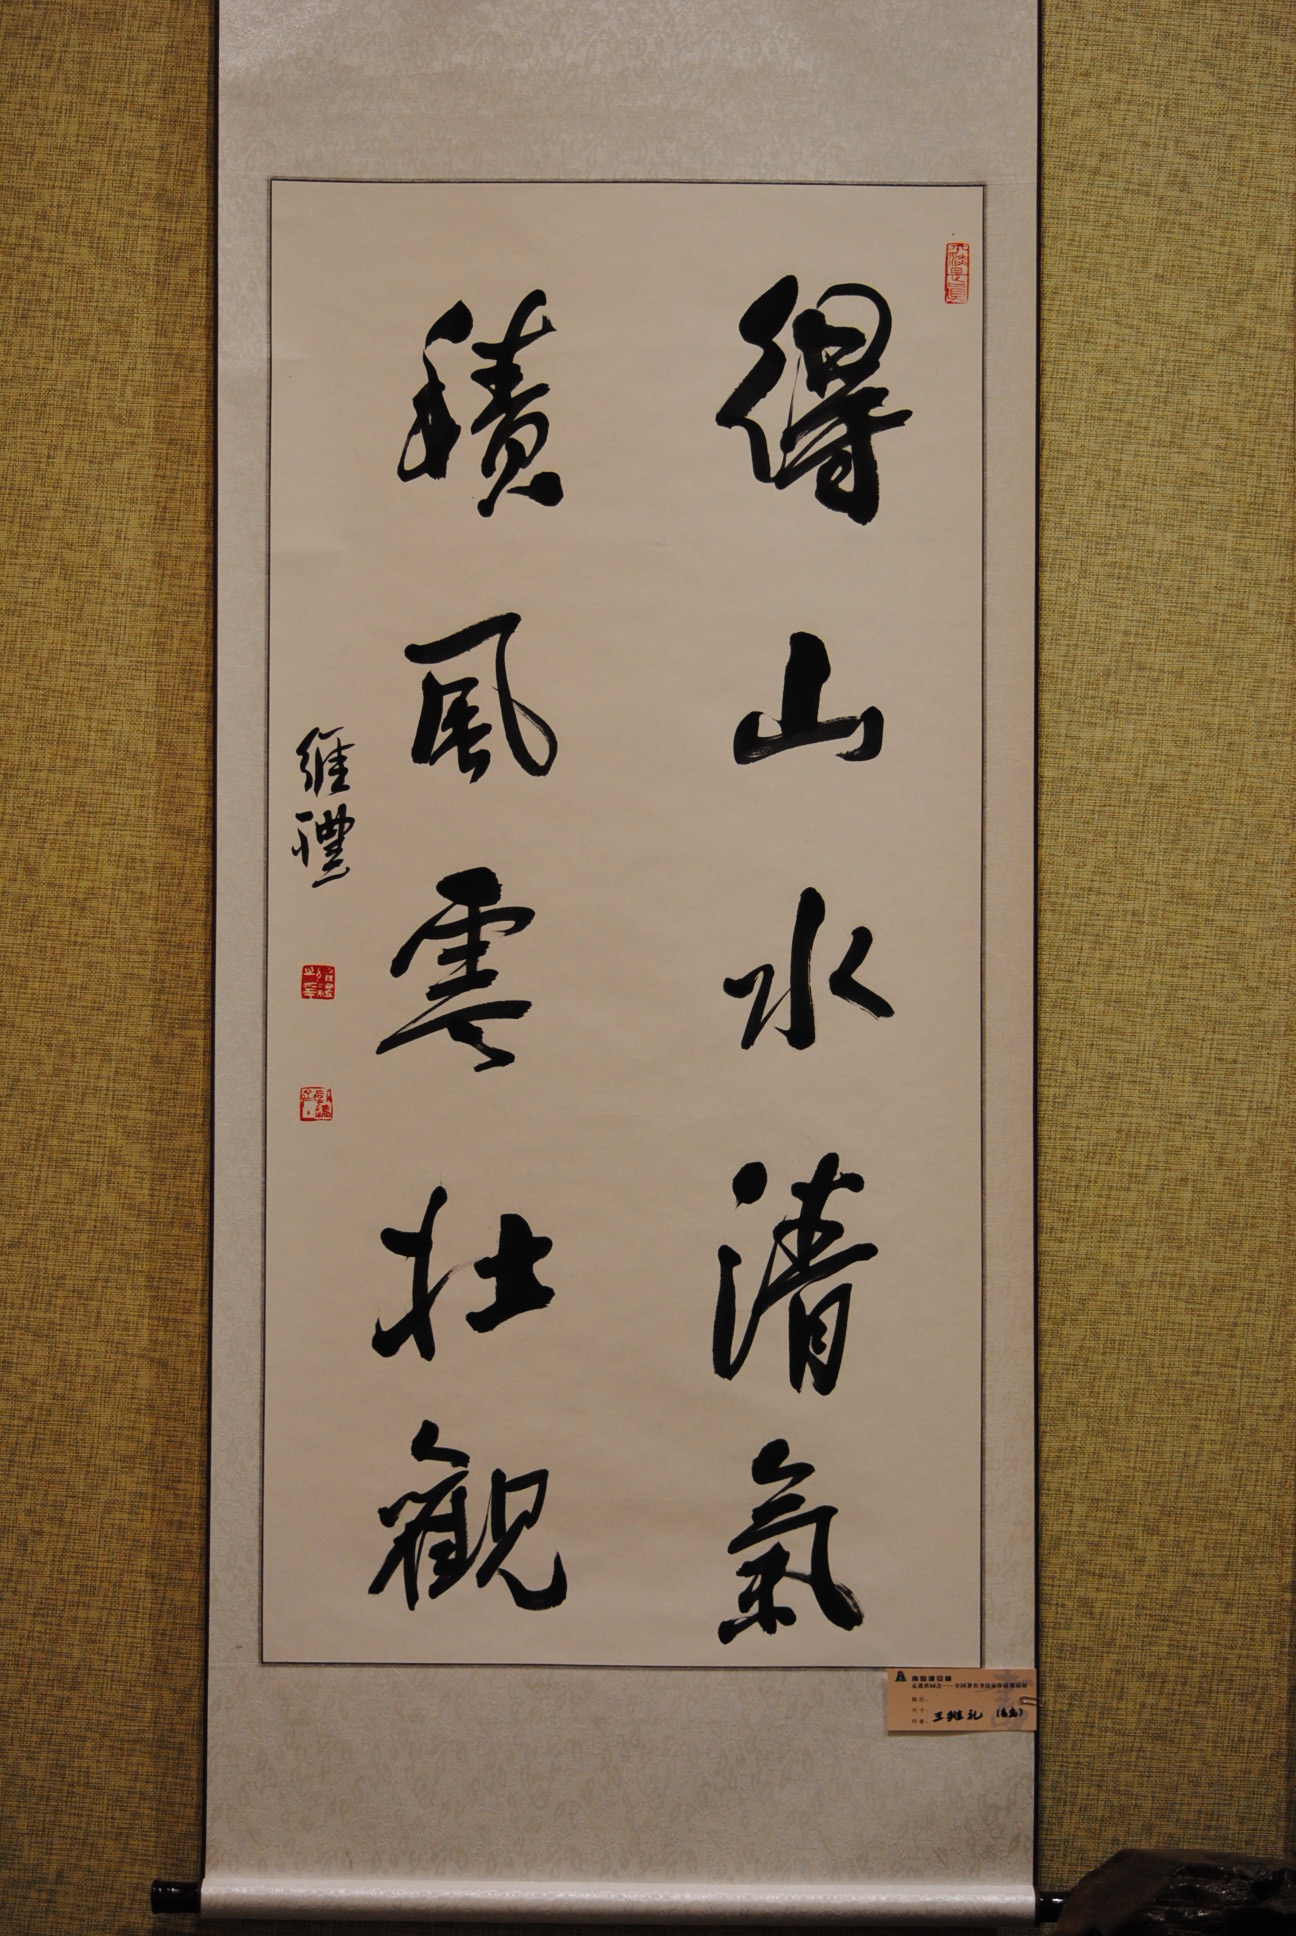 得山水清氣
積風雲壯觀
維禮
王維礼 (青島)